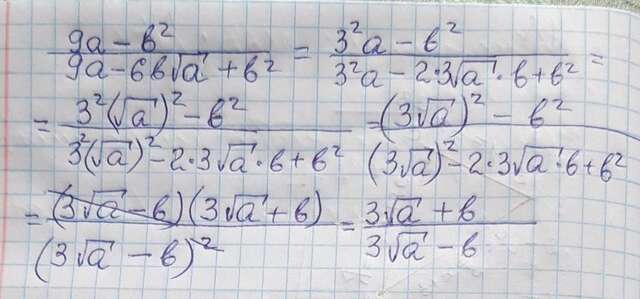 (9a - в²)/(9a - 6в√a + в²) = (3²a - в²)/(3²a - 2·3√a·в + в²) =
= (3²(√a)² - в²)/(3²(√a)² - 2·3√a·в + в²) = ((3√a)² - в²)/((3√a)² - 2·3√a·в + в²)
= ((3√a - в)(3√a + в))/(3√a - в)² = (3√a + в)/(3√a - в)